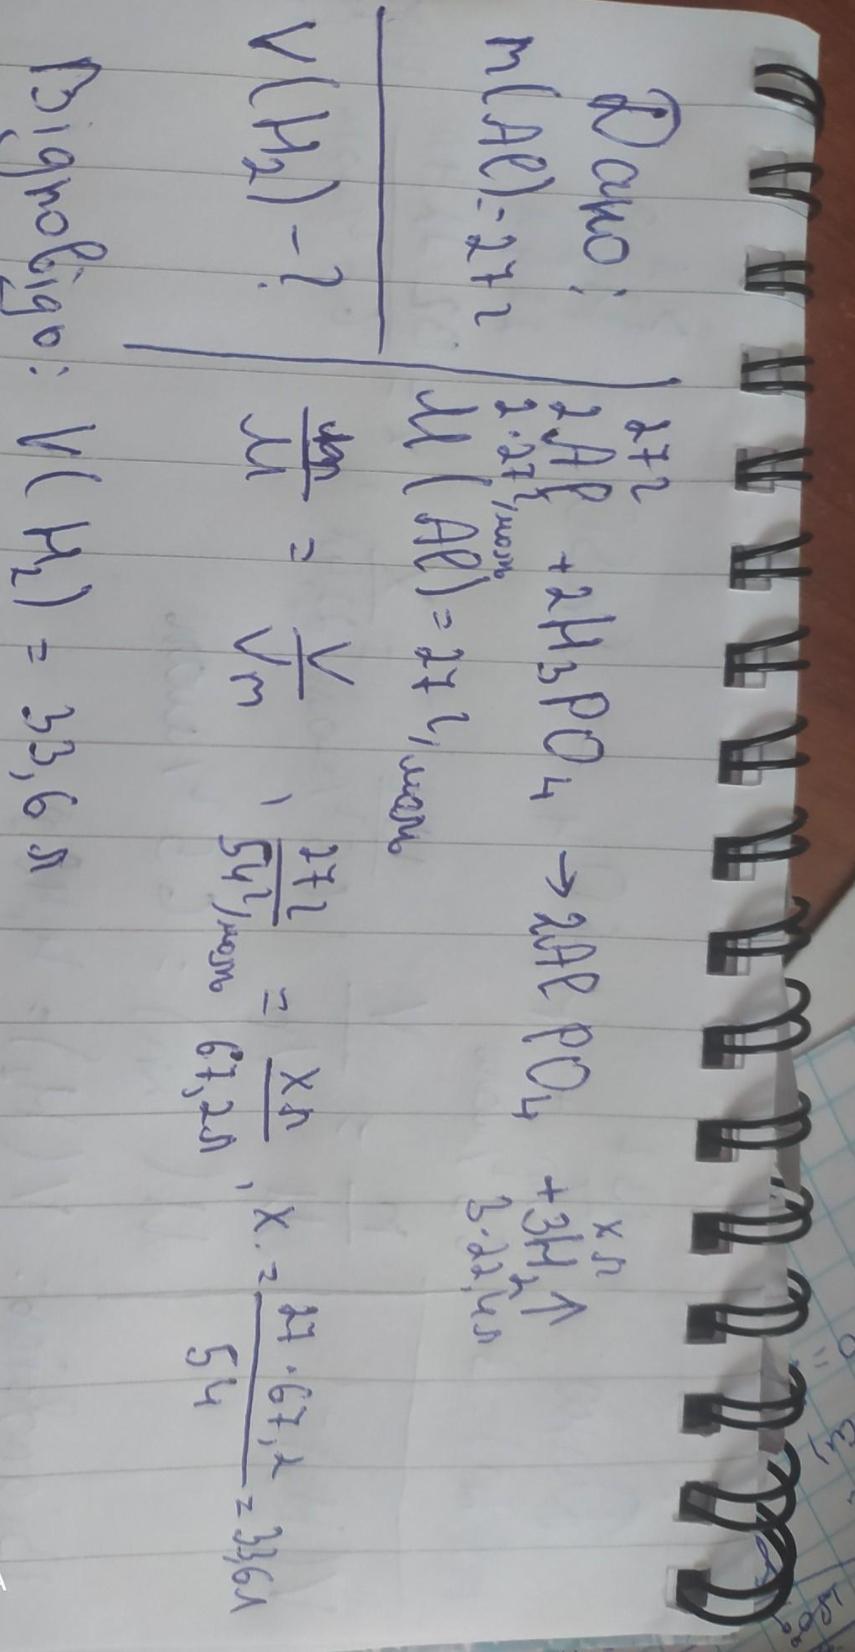 Дано:
m(Al)=27г
V(H₂)-?
27г xл
2Al + 2H₃PO₄ → 2AlPO₄ + 3H₂↑
2·27г/моль 3·22,4л
M(Al)=27г/моль
m/M = V/Vm , 27г/54г/моль = xл/67,2л , x = 27·67,2/54 = 33,6л
Відповідь: V(H₂) = 33,6л